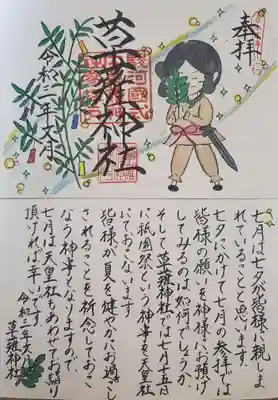 奉拝
草薙神社
令和三年文月
七月は七夕が皆様に親しま
れていることと思います。
七夕にかけて七月の参拝では
皆様の願いを神様にお預け
してみるのは如何でしょうか。
そして草薙神社では七月十五日
に祇園祭という神事を天皇社
にておこないます
皆様が夏を健やかにお過ごし
されることを祈念しておこ
なう神事となりますので、
七月は天皇社もあわせてお詣り
頂ければ幸いです。
令和三年文月
草薙神社